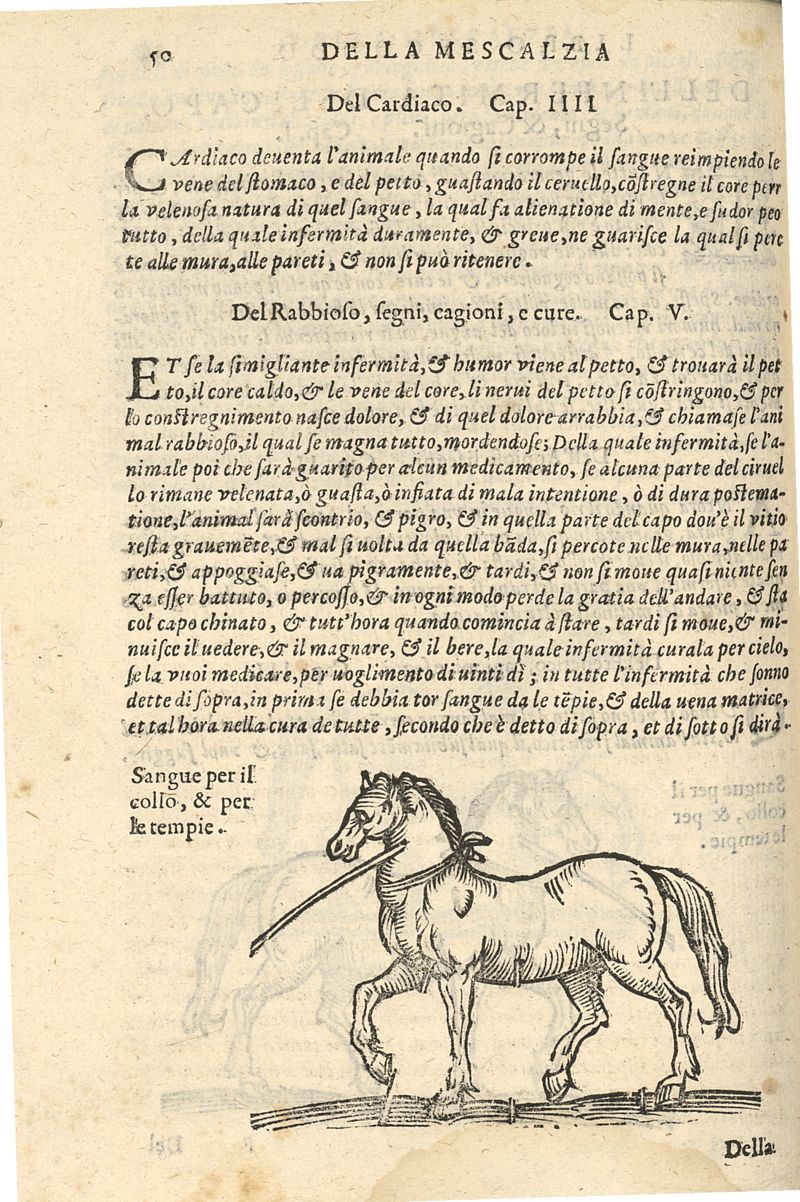 50 DELLA MESCALZIA
Del Cardiaco. Cap. IIII
CArdiaco deuenta l'animale quando si corrompe il sangue reimpiendo le
vene del stomaco, e del petto, guastando il ceruello, cõstregne il core perr
la velenosa natura di quel sangue, la qual fa alienatione di mente, e sudor peo
tutto, della quale infermità duramente, & greue, ne guarisce la qual si perc
te alle mura, alle pareti, & non si può ritenere.
Del Rabbioso, segni, cagioni, e cure. Cap. V.
ET se la simigliante infermità, & humor viene al petto, & trouarà il pet
to, il core caldo, & le vene del core, li nerui del petto si cõstringono, & per
lo constregnimento nasce dolore, & di quel dolore arrabbia, & chiamase l'ani
mal rabbioso, il qual se magna tutto, mordendose; Della quale infermità, se l'a-
nimale poi che sarà guarito per alcun medicamento, se alcuna parte del ciruel
lo rimane velenata, ò guasta, ò infiata di mala intentione, ò di dura postema-
tione, l'animal sarà scontrio, & pigro, & in quella parte del capo dou'è il vitio
resta grauemẽte, & mal si uolta da quella bãda, si percote nelle mura, nelle pa
reti, & appoggiase, & ua pigramente, & tardi, & non si moue quasi niente sen
za esser battuto, o percosso, & in ogni modo perde la gratia dell'andare, & sta
col capo chinato, & tutt'hora quando comincia à stare, tardi si moue, & mi-
nuisce il uedere, & il magnare, & il bere, la quale infermità curala per cielo,
se la vuoi medicare, per uoglimento di uinti dì; in tutte l'infermità che sonno
dette di sopra, in prima se debbia tor sangue da le tẽpie, & della uena matrice,
et tal hora nella cura de tutte, secondo che è detto di sopra, et di sotto si dirà.
Sangue per il
collo, & per
le tempie.
Della